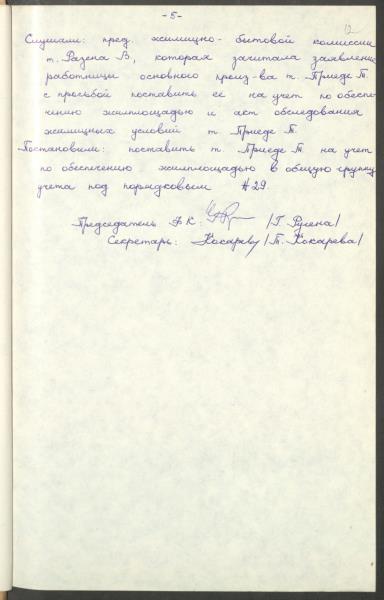 -5-
12
Слушали: пред. жилищно-бытовой комиссии
т. Разена В., которая зачитала заявление
работницы основного произ-ва т. Приеде Т.
с просьбой поставить ее на учет по обеспе-
чению жилплощадью и акт обследования
жилищных условий т. Приеде Т.
Постановили: поставить т. Приеде Т. на учет
по обеспечению жилплощадью в общую группу
учета под порядковым № 29.
Председатель ФК: /Г. Русена/
Секретарь: Кокарева /Т. Кокарева/